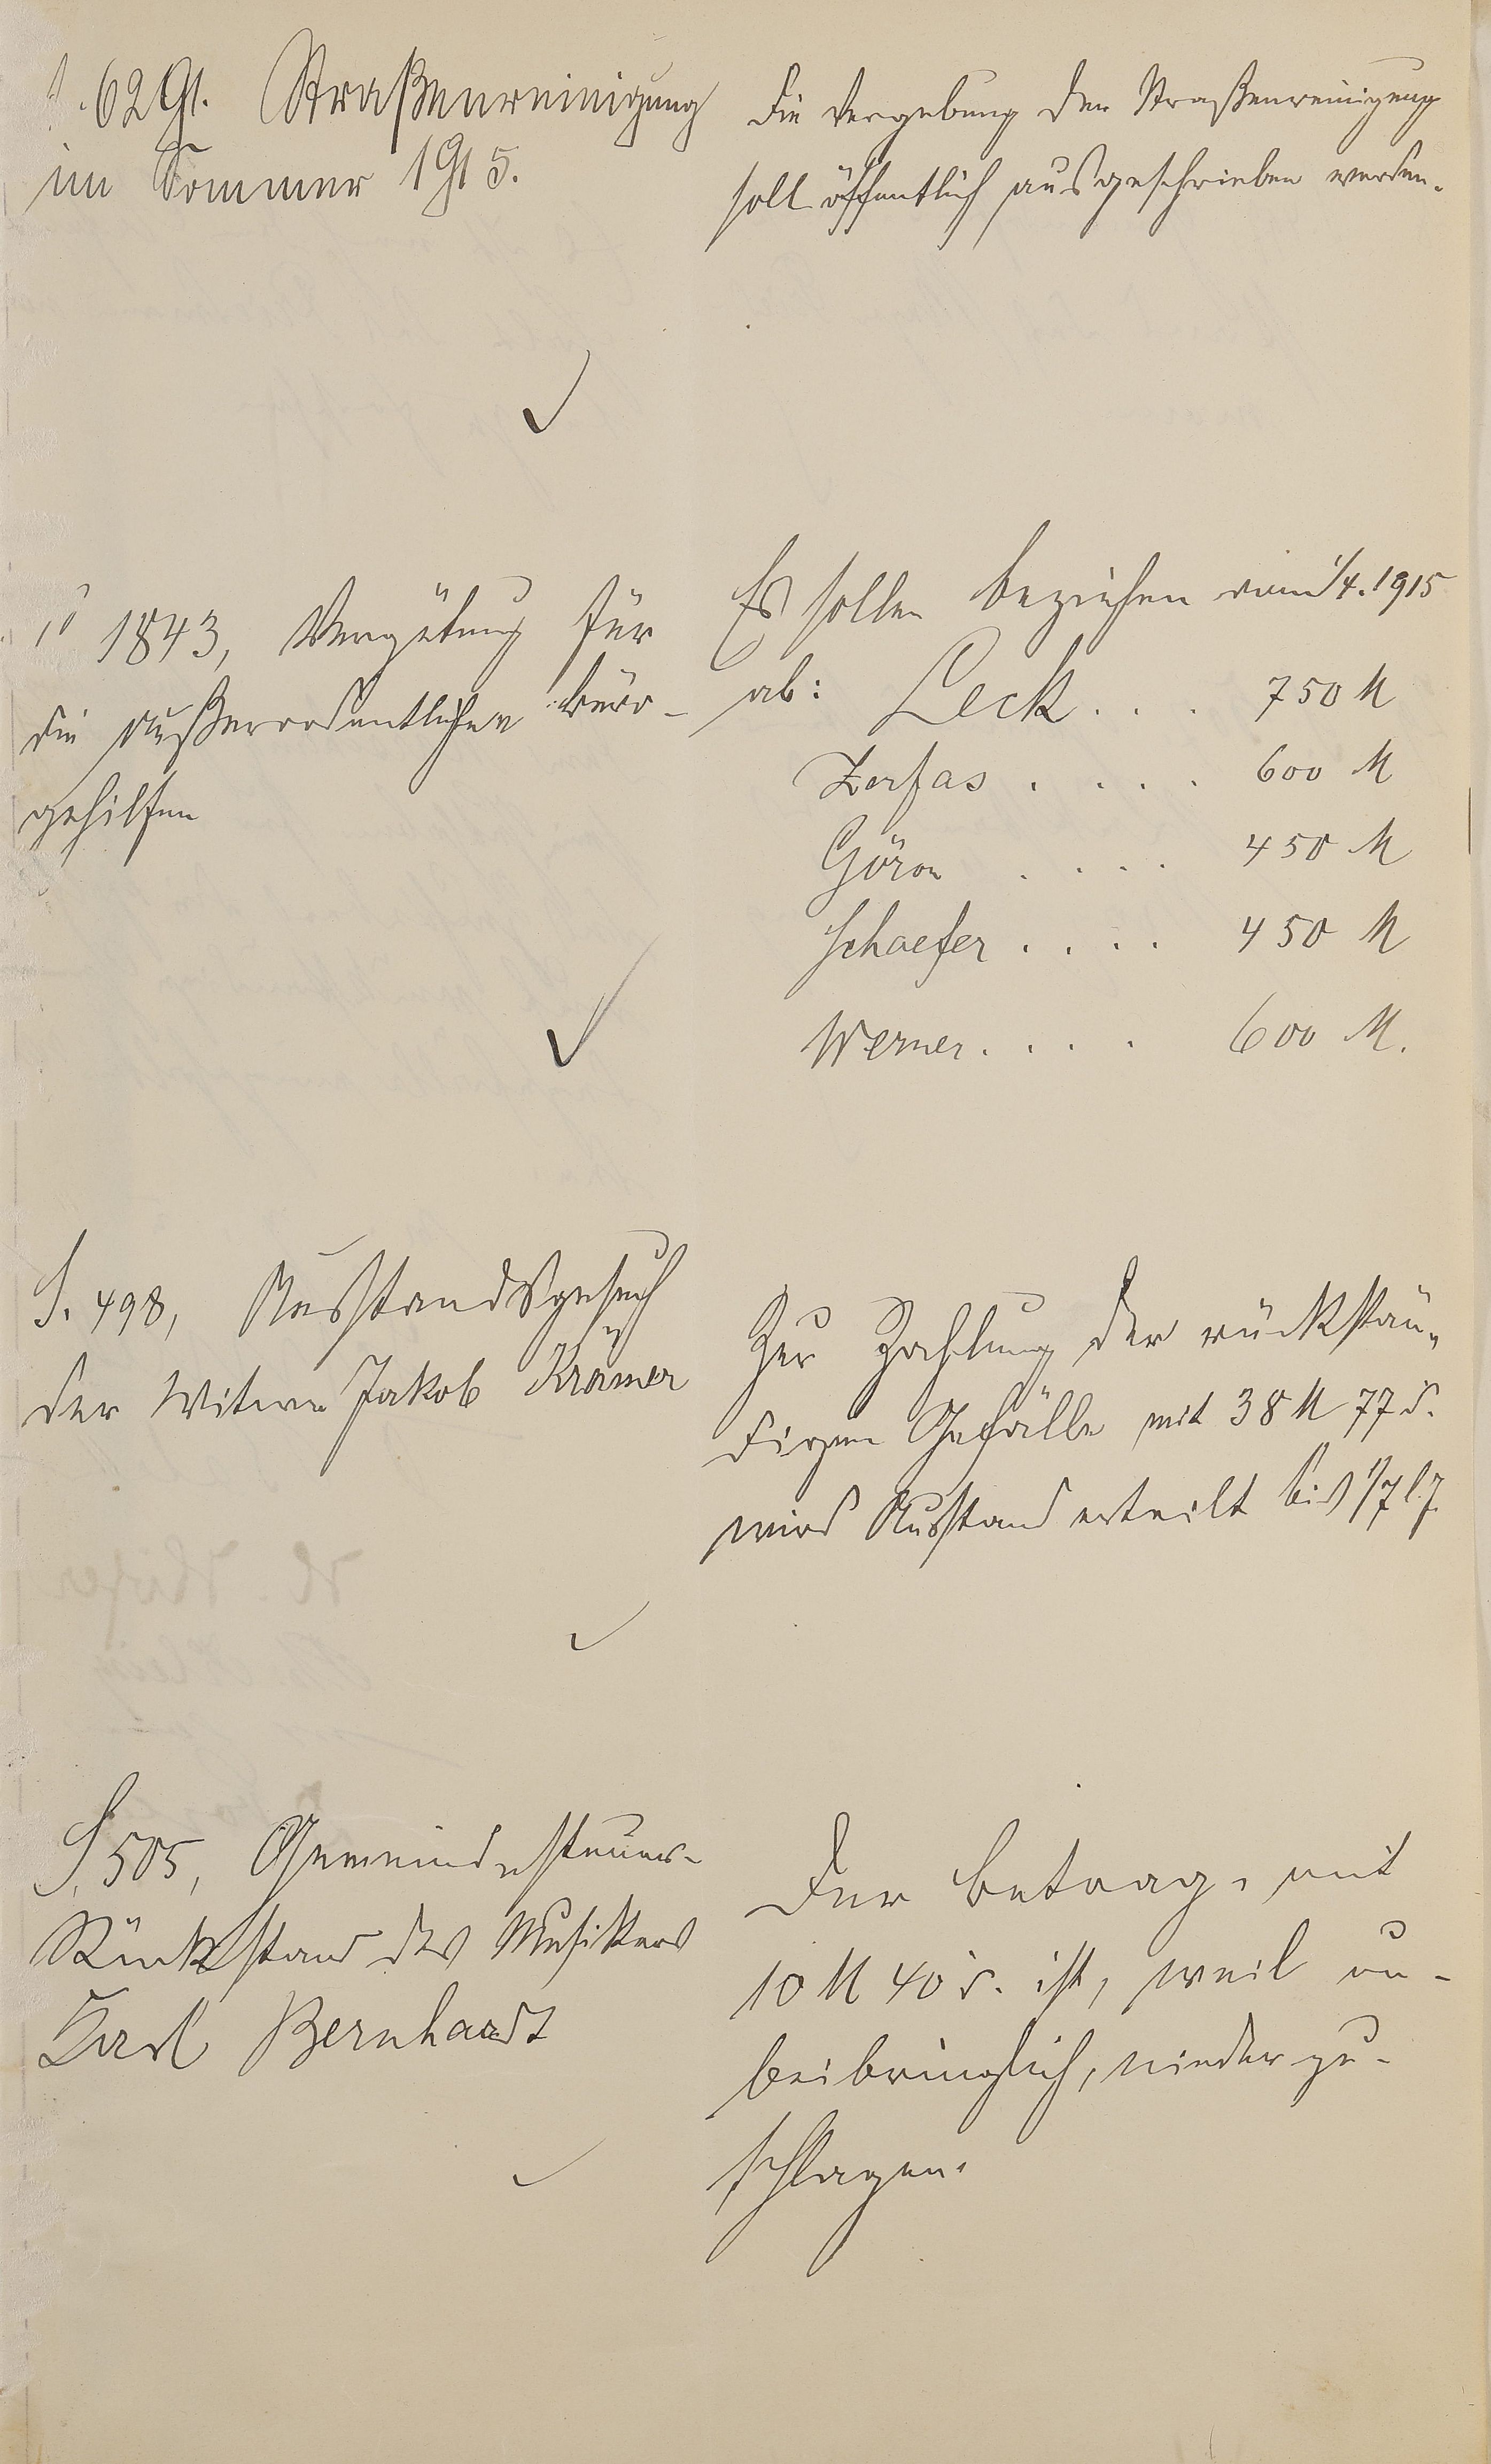 J. 629. Straßenreinigung
im Sommer 1915.
Die Vergebung der Straßenreinigung
soll öffentlich ausgeschrieben werden.
1843, Vergütung für
die außerordentlichen Büro-
gehilfen
Es sollen beziehen vom 1/4. 1915
ab: Leck . . . 750 M
Zerfas . . . . 600 M
Göron . . . . 450 M
Schaefer . . . . 450 M
Werner . . . . 600 M.
J. 498, Ausstandsgesuch
der Witwe Jakob Krämer
Zur Zahlung der rückstän-
digen Gefälle mit 38 M 77 d.
wird Ausstand erteilt bis 1/7 l. J.
J. 505, Gemeindesteuer-
Rückstand des Musikers
Karl Bernhardt
Der Betrag, mit
10 M 40 d. ist, weil un-
beibringlich, niederzu-
schlagen.